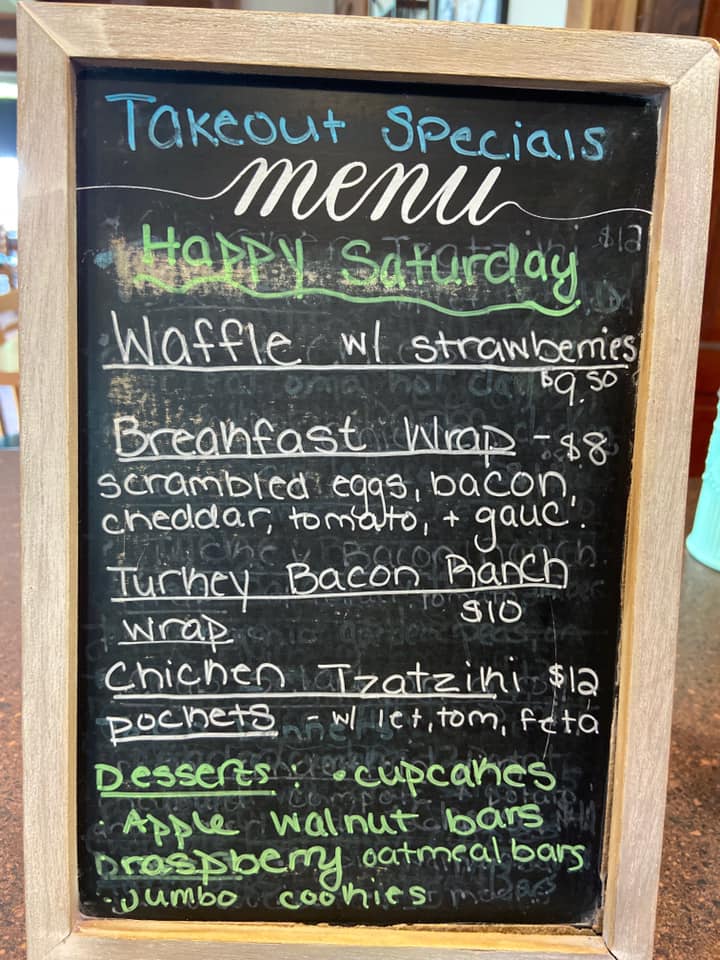 Takeout Specials
menu
Happy Saturday
$12
Waffle w/ strawberries
$9.50
Breakfast Wrap - $8
scrambled eggs, bacon,
cheddar, tomato, + gauc.
Turkey Bacon Ranch
wrap $10
Chicken Tzatziki $12
pockets - w/ let, tom, feta
Desserts: • cupcakes
• Apple walnut bars
raspberry oatmeal bars
• Jumbo cookies